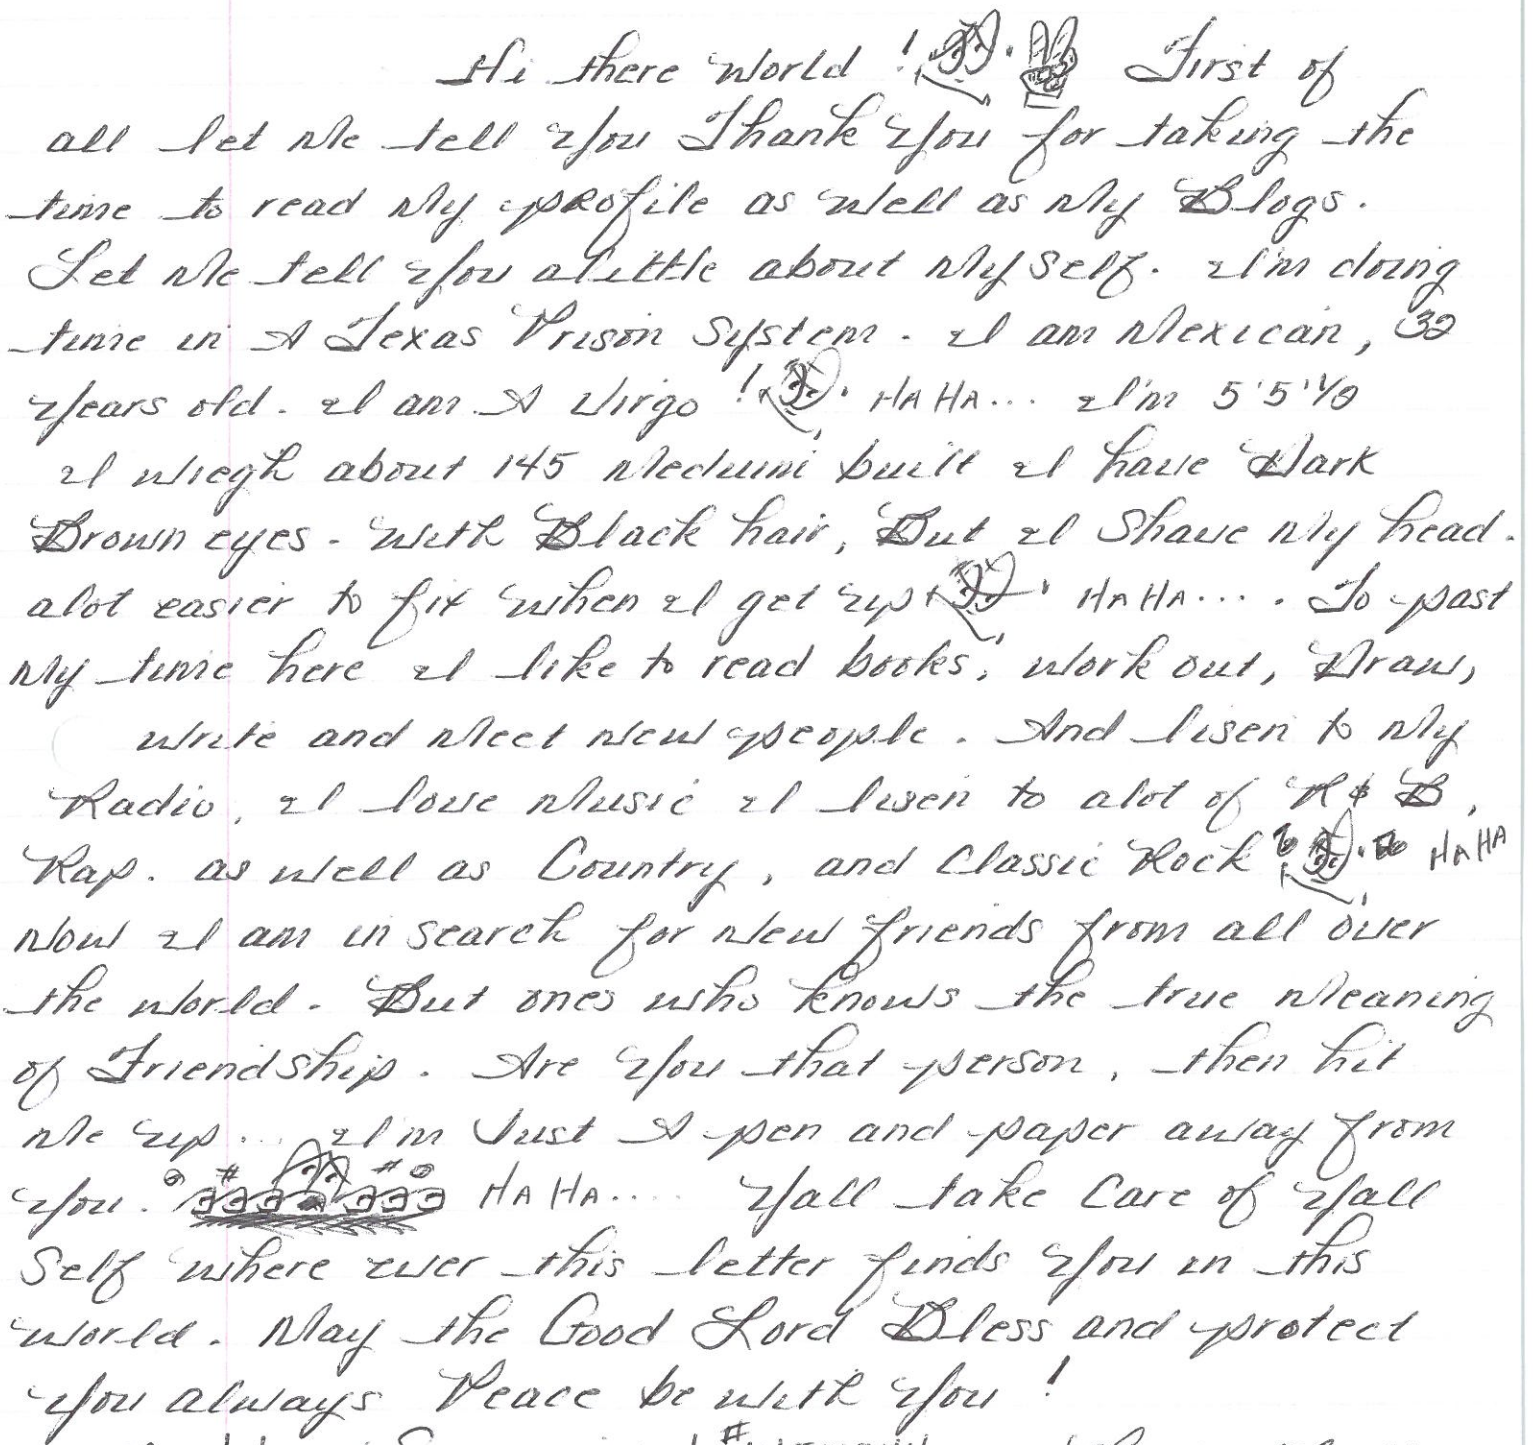 Hi there World ! First of
all let Me tell You Thank You for taking the
time to read My profile as well as My Blogs.
Let Me tell You alittle about Myself. I'm doing
time in A Texas Prison System. I am Mexican, 32
Years old. I am A Virgo ! HAHA... I'm 5'5'1/2
I wiegh about 145 Meduim built I have Dark
Brown eyes. With Black hair, But I Shave My head.
alot easier to fix when I get up HAHA.... To past
My time here I like to read books, work out, Draw,
write and Meet New people. And lisen to My
Radio, I love Music I lisen to alot of R & B,
Rap. as well as Country, and Classic Rock HAHA
Now I am in search for New friends from all over
the world. But ones who knows the true Meaning
of Friendship. Are You that person, then hit
Me up... I'm Just A pen and paper away from
You. HAHA.... Yall take Care of Yall
Self where ever this letter finds You in this
world. May the Good Lord Bless and protect
You always Peace be with You !